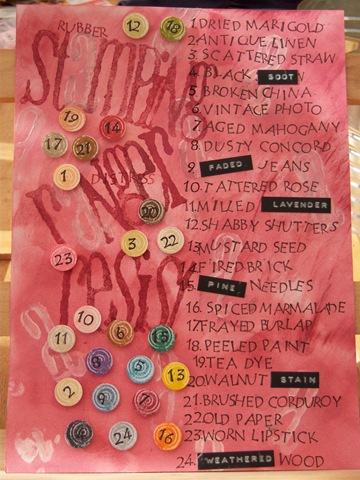 RUBBER
STAMPIN
DISTRESS
1. DRIED MARIGOLD
2. ANTIQUE LINEN
3. SCATTERED STRAW
4. BLACK SOOT
5. BROKEN CHINA
6. VINTAGE PHOTO
7. AGED MAHOGANY
8. DUSTY CONCORD
9. FADED JEANS
10. TATTERED ROSE
11. MILLED LAVENDER
12. SHABBY SHUTTERS
13. MUSTARD SEED
14. FIRED BRICK
15. PINE NEEDLES
16. SPICED MARMALADE
17. FRAYED BURLAP
18. PEELED PAINT
19. TEA DYE
20. WALNUT STAIN
21. BRUSHED CORDUROY
22. OLD PAPER
23. WORN LIPSTICK
24. WEATHERED WOOD
12 18
19 14
17 21
1
20
3 22
23
10
11 6 15
8 5 13
2 9 7
4 24 16